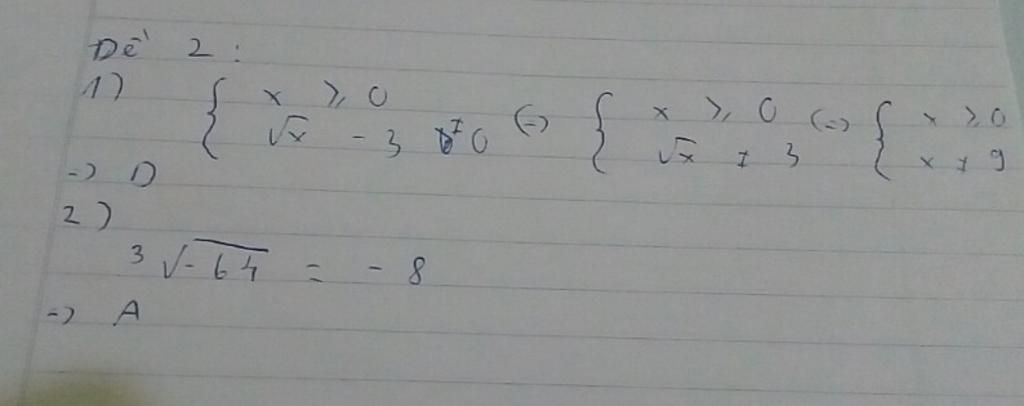 Đề 2:
1) { x ≥ 0 (=) { x ≥ 0 (=) { x ≥ 0
√x - 3 ≠ 0 √x ≠ 3 x ≠ 9
=) D
2)
³√-64 = - 8
=) A